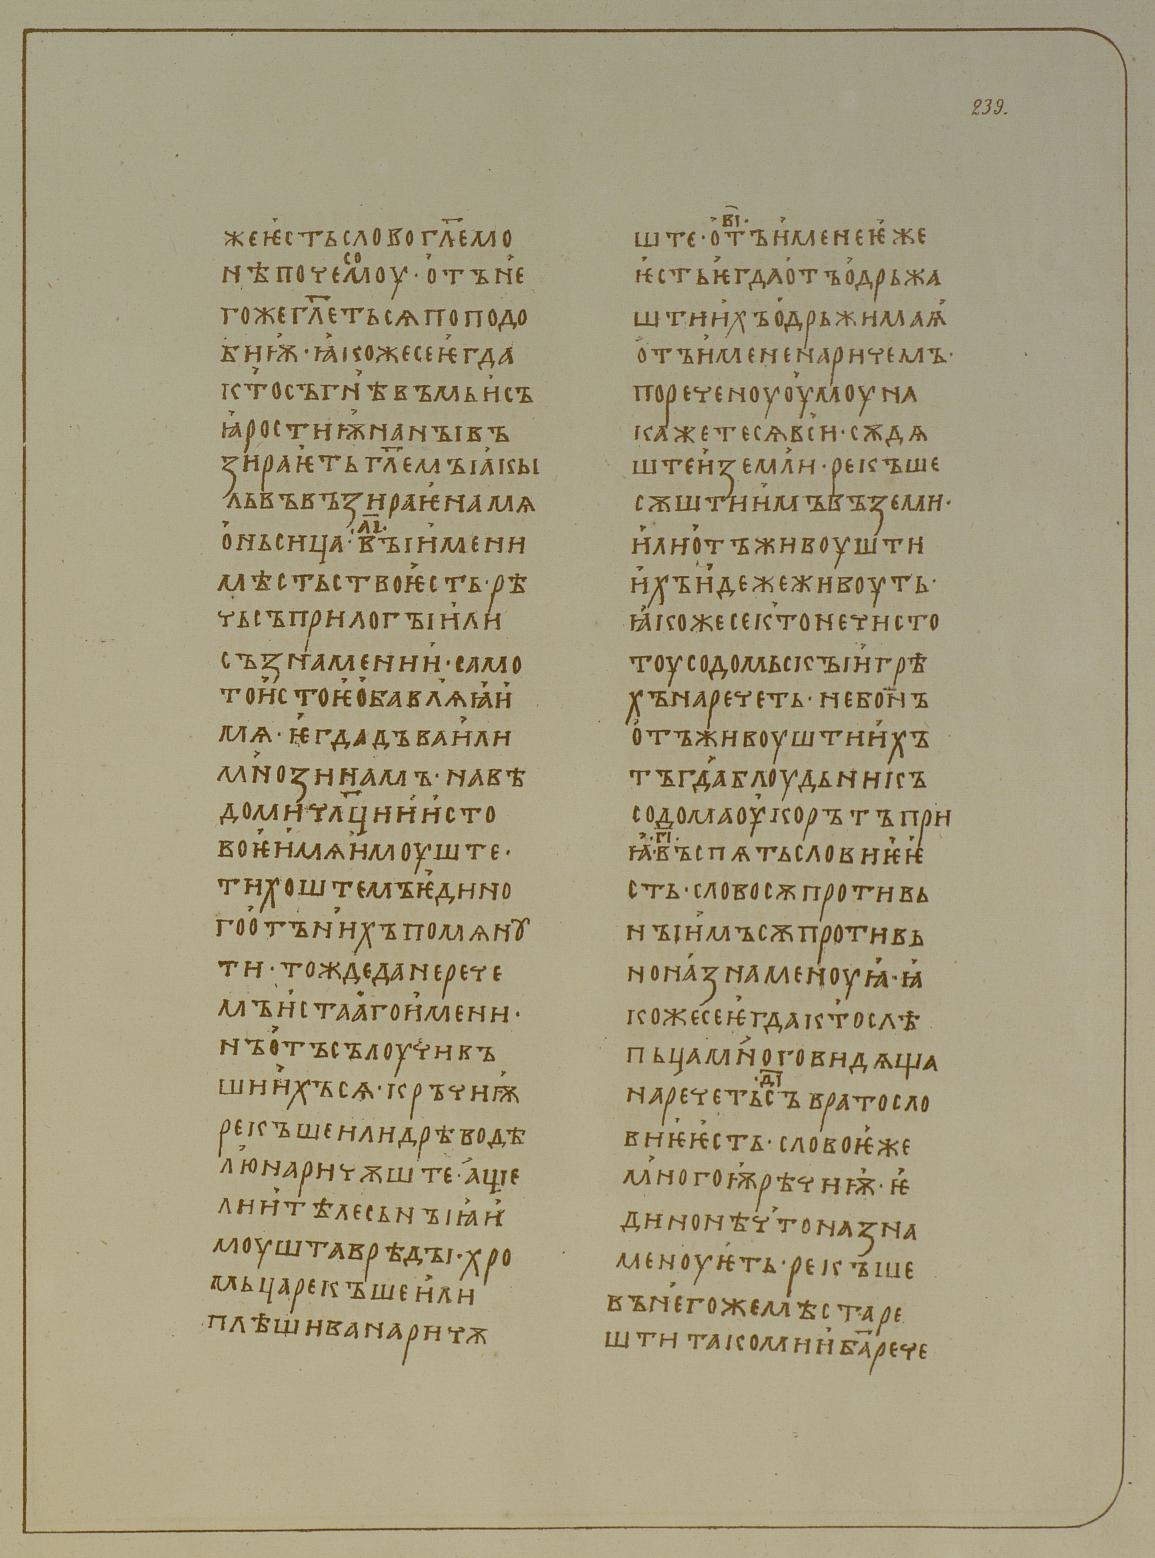 239.
жеѥстьсловогл҃емо
нѣпочемоусо·отъне
гожегл҃етьсѧпоподо
биѭ·ꙗкожесеѥгда
ктосъгнѣвъмьисъ
ꙗростиѭнанъıвъ
зираѥтьгл҃емъıакы
львъвъзираѥнамѧ
оньсица·а҃ı·въıимени
мѣстьствоѥсть·рѣ
чьсъприлогъıили
съзнамении·само
тоистоѥобавлѧꙗи
мѧ·ѥгдадъваили
мнозинамъ·навѣ
домичл҃цниисто
воѥимѧимоуште·
тихоштемъѥдино
гоотънихъпомѧнꙋ
ти·тождеданерече
мъистаагоимени·
нъотъсълоучивъ
шиихъсѧ·кръчиѭ
рекъшеилидрѣводѣ
люнаричѫште·аще
лиитѣлесьнъıꙗи
моуштаврѣдъı·хро
мьцарекъшеили
плѣшиванаричѫ
ште·в҃ı·отъименеѥже
ѥстьѥгдаотъодрьжа
штиихъодрьжимаѩ
отъимененаричемъ·
пореченоуоумоуна
кажетесѧвси·сѫдѧ
штеиземли·рекъше
сѫштиимъвъземи·
илиотъживоушти
ихъидежеживоуть·
ꙗкожесектонечисто
тоусодомьскъıигрѣ
хънаречеть·небонъ
отъживоуштиихъ
тъгдаблоудьникъ
содомаоукорътъпри
ꙗ·г҃ı·въспѧтьсловиѥѥ
сть·словосѫпротивь
нъıимъсѫпротивь
ноназнаменоуꙗ·ꙗ
кожесеѥгдактослѣ
пьцамноговидѧща
наречеть·д҃ı·съвратосло
виѥѥсть·словоѥже
многоѭрѣчиѭ·ѥ
динонѣчтоназна
меноуѥть·рекъше
вънегожемѣстаре
штитакомнииба҃рече